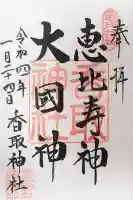 奉拝
恵比寿神
大國神
令和四年
一月二十四日
香取神社